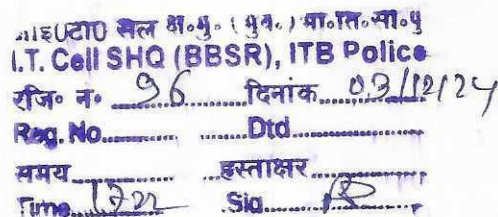 आई०टी० सैल क्षे०मु० (भुव.) भा०ति०सी०पु
I.T. Cell SHQ (BBSR), ITB Police
रजि० न० 96 दिनांक 03/12/24
Reg. No. Dtd
समय हस्ताक्षर
Time Sig